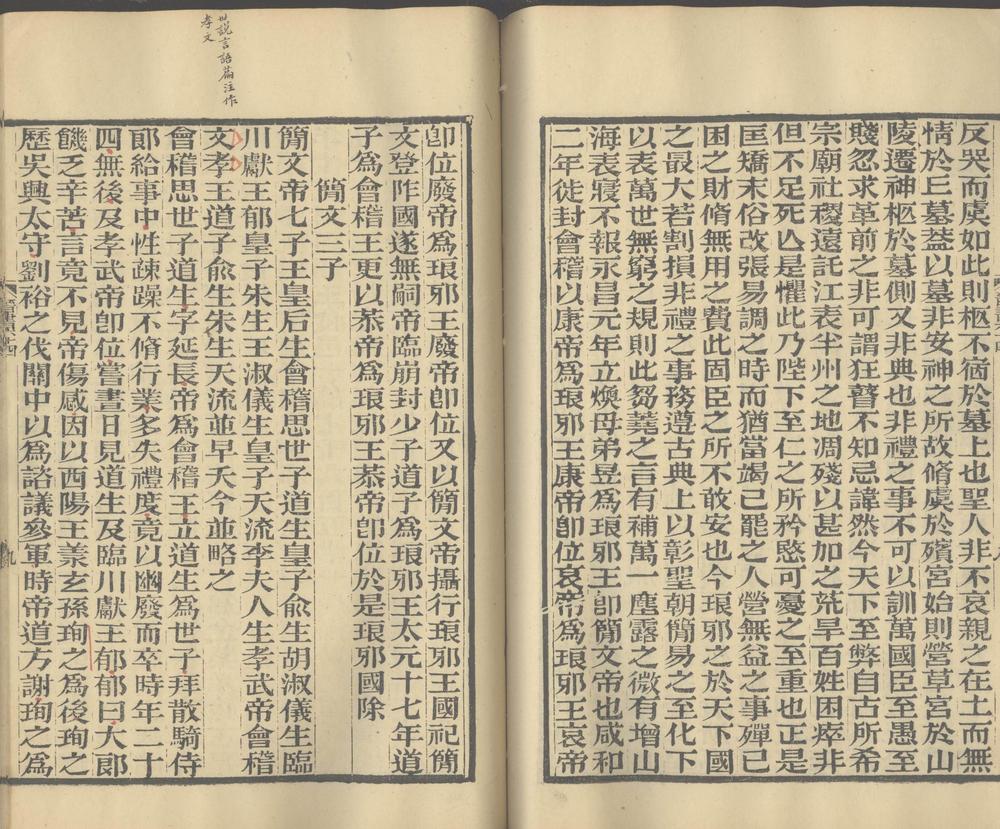 反哭而虞如此則柩不宿於墓上也聖人非不哀親之在土而無
情於丘墓葢以墓非安神之所故脩虞於殯宮始則營草宮於山
陵遷神柩於墓側又非典也非禮之事不可以訓萬國臣至愚至
賤忽求革前之非可謂狂瞽不知忌諱然今天下至弊自古所希
宗廟社稷遠託江表半州之地凋殘以甚加之荒旱百姓困瘁非
但不足死亾是懼此乃陛下至仁之所矜愍可憂之至重也正是
匡矯末俗改張易調之時而猶當竭已罷之人營無益之事殫已
困之財脩無用之費此固臣之所不敢安也今琅邪之於天下國
之最大若割損非禮之事務遵古典上以彰聖朝簡易之至化下
以表萬世無窮之規則此芻蕘之言有補萬一塵露之微有增山
海表寢不報永昌元年立煥母弟昱爲琅邪王卽簡文帝也咸和
二年徙封會稽以康帝爲琅邪王康帝卽位哀帝爲琅邪王哀帝
世説言語篇注作
孝文
卽位廢帝爲琅邪王廢帝卽位又以簡文帝攝行琅邪王國祀簡
文登阼國遂無嗣帝臨崩封少子道子爲琅邪王太元十七年道
子爲會稽王更以恭帝爲琅邪王恭帝卽位於是琅邪國除
簡文三子
簡文帝七子王皇后生會稽思世子道生皇子俞生胡淑儀生臨
川獻王郁皇子朱生王淑儀生皇子天流李夫人生孝武帝會稽
文孝王道子俞生朱生天流並早夭今並略之
會稽思世子道生字延長帝爲會稽王立道生爲世子拜散騎侍
郞給事中性疎躁不脩行業多失禮度竟以幽廢而卒時年二十
四無後及孝武帝卽位嘗晝日見道生及臨川獻王郁郁曰大郞
饑乏辛苦言竟不見帝傷感因以西陽王羕玄孫珣之爲後珣之
歷吳興太守劉裕之伐關中以爲諮議參軍時帝道方謝珣之爲